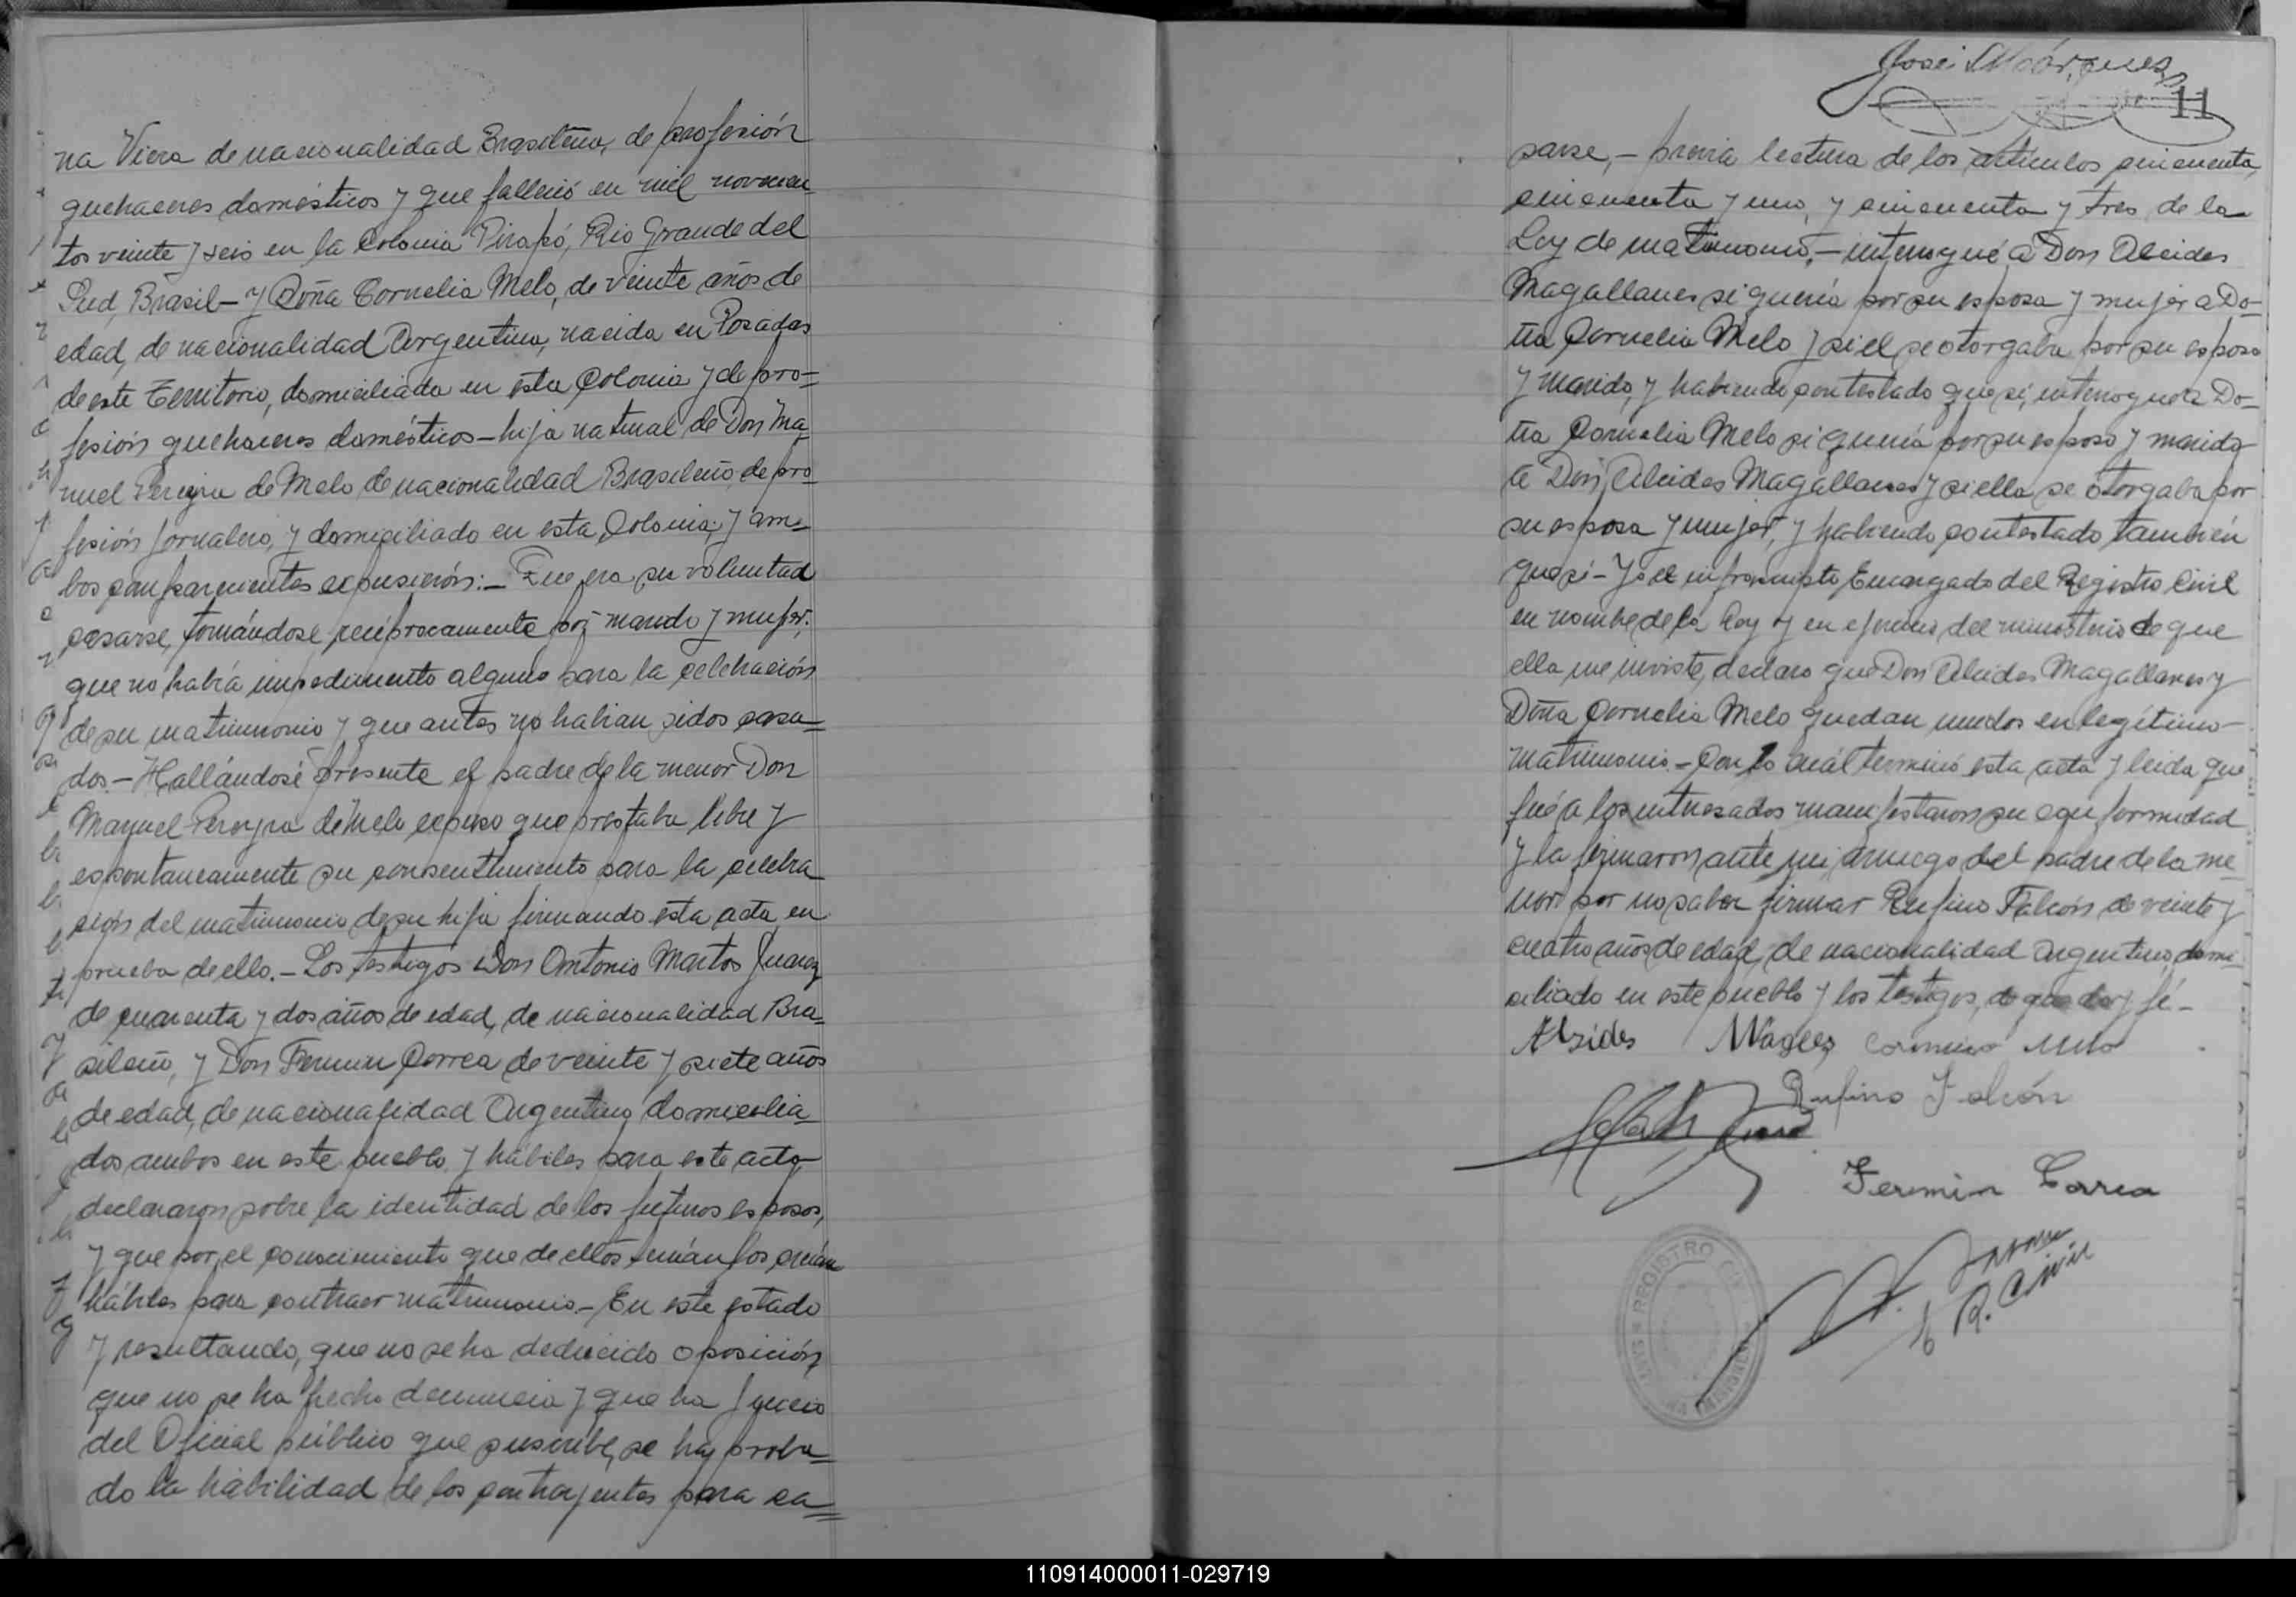 na Viera de nacionalidad Brasileña, de profesión
quehaceres domésticos y que falleció en mil novecien-
tos veinte y seis en la Colonia Pirapó, Rio Grande del
Sud, Brasil - y Doña Cornelia Melo, de veinte años de
edad, de nacionalidad Argentina, nacida en Posadas
de este Territorio, domiciliada en esta Colonia y de pro=
fesión quehaceres domésticos - hija natural de Don Ma-
nuel Pereyra de Melo de nacionalidad Brasileño, de pro-
fesión jornalero, y domiciliado en esta Colonia; y am=
bos comparecientes expusierón: - Que era su voluntad
casarse, tomándose recíprocamente por marido y mujer;
que no habrá impedimento alguno para la celebración
de su matrimonio y que antes no habian sidos casa=
dos. - Hallándosé presente el padre de la menor Don
Manuel Pereyra de Melo expuso que prestaba libre y
espontaneamente su consentimiento para la celebra-
ción del matrimonio de su hija firmando esta acta en
prueba de ello. - Los testigos Don Antonio Martos Juarez
de cuarenta y dos años de edad, de nacionalidad Bra=
sileño, y Don Fermin Correa de veinte y siete años
de edad, de nacionalidad Argentino, domicilia-
dos ambos en este pueblo y hábiles para este acto
declararon sobre la identidad de los futuros esposos,
y que por el conocimiento que de ellos tenían los creían
hábiles para contraer matrimonio. - En este estado
y resultando, que no se ha deducido oposición,
que no se ha hecho denuncia y que ha juicio
del Oficial público que suscribe, se ha proba=
do la habilidad de los contrayentes para ca=
José Márques
11
sarse, - previa lectura de los artículos cincuenta,
cincuenta y uno, y cincuenta y tres de la
Ley de matrimonio, - interrogué a Don Alcides
Magallanes si quería por su esposa y mujer a Do-
ña Cornelia Melo y si el se otorgaba por su esposo
y marido, y habiendo contestado que si, interrogué a Do-
ña Cornelia Melo si quería por su esposo y marido
a Don Alcides Magallanes y si ella se otorgaba por
su esposa y mujer, y habiendo contestado también
que si - Yo el infrascripto Encargado del Registro Civil
en nombre de la Ley y en ejercicio del ministerio de que
ella me inviste, declaro que Don Alcides Magallanes y
Doña Cornelia Melo quedan unidos en legítimo
matrimonio. - Con lo cuál terminó esta acta y leida que
fué a los interesados manifestaron su conformidad
y la firmaron ante mi, a ruego del padre de la me-
nor por no saber firmar Rufino Falcón de veinte y
cuatro años de edad, de nacionalidad Argentino, domi-
ciliado en este pueblo y los testigos, de que doy fé -
Alsides Magles Cornelio Melo
Rufino Falcón
Fermin Correa
R. Civil
REGISTRO CIVIL
MISIONES
110914000011-029719